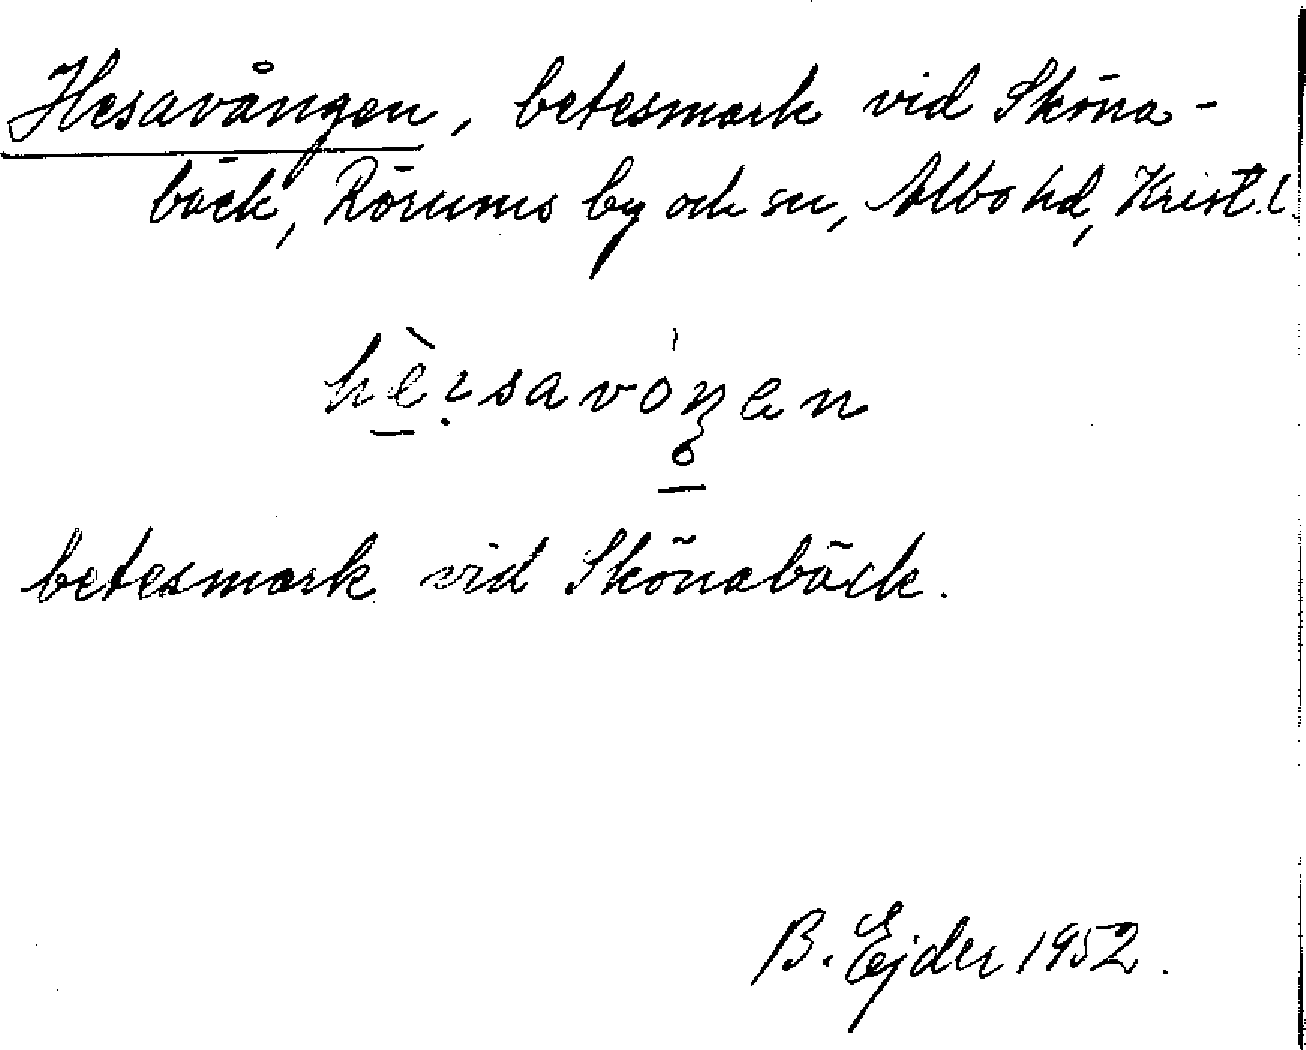 Hesavången, betesmark vid Sköna-
bäck, Rörums by och sn, Albo hd, Krist. l.
betesmark vid Skönabäck.
B. Ejder 1952.